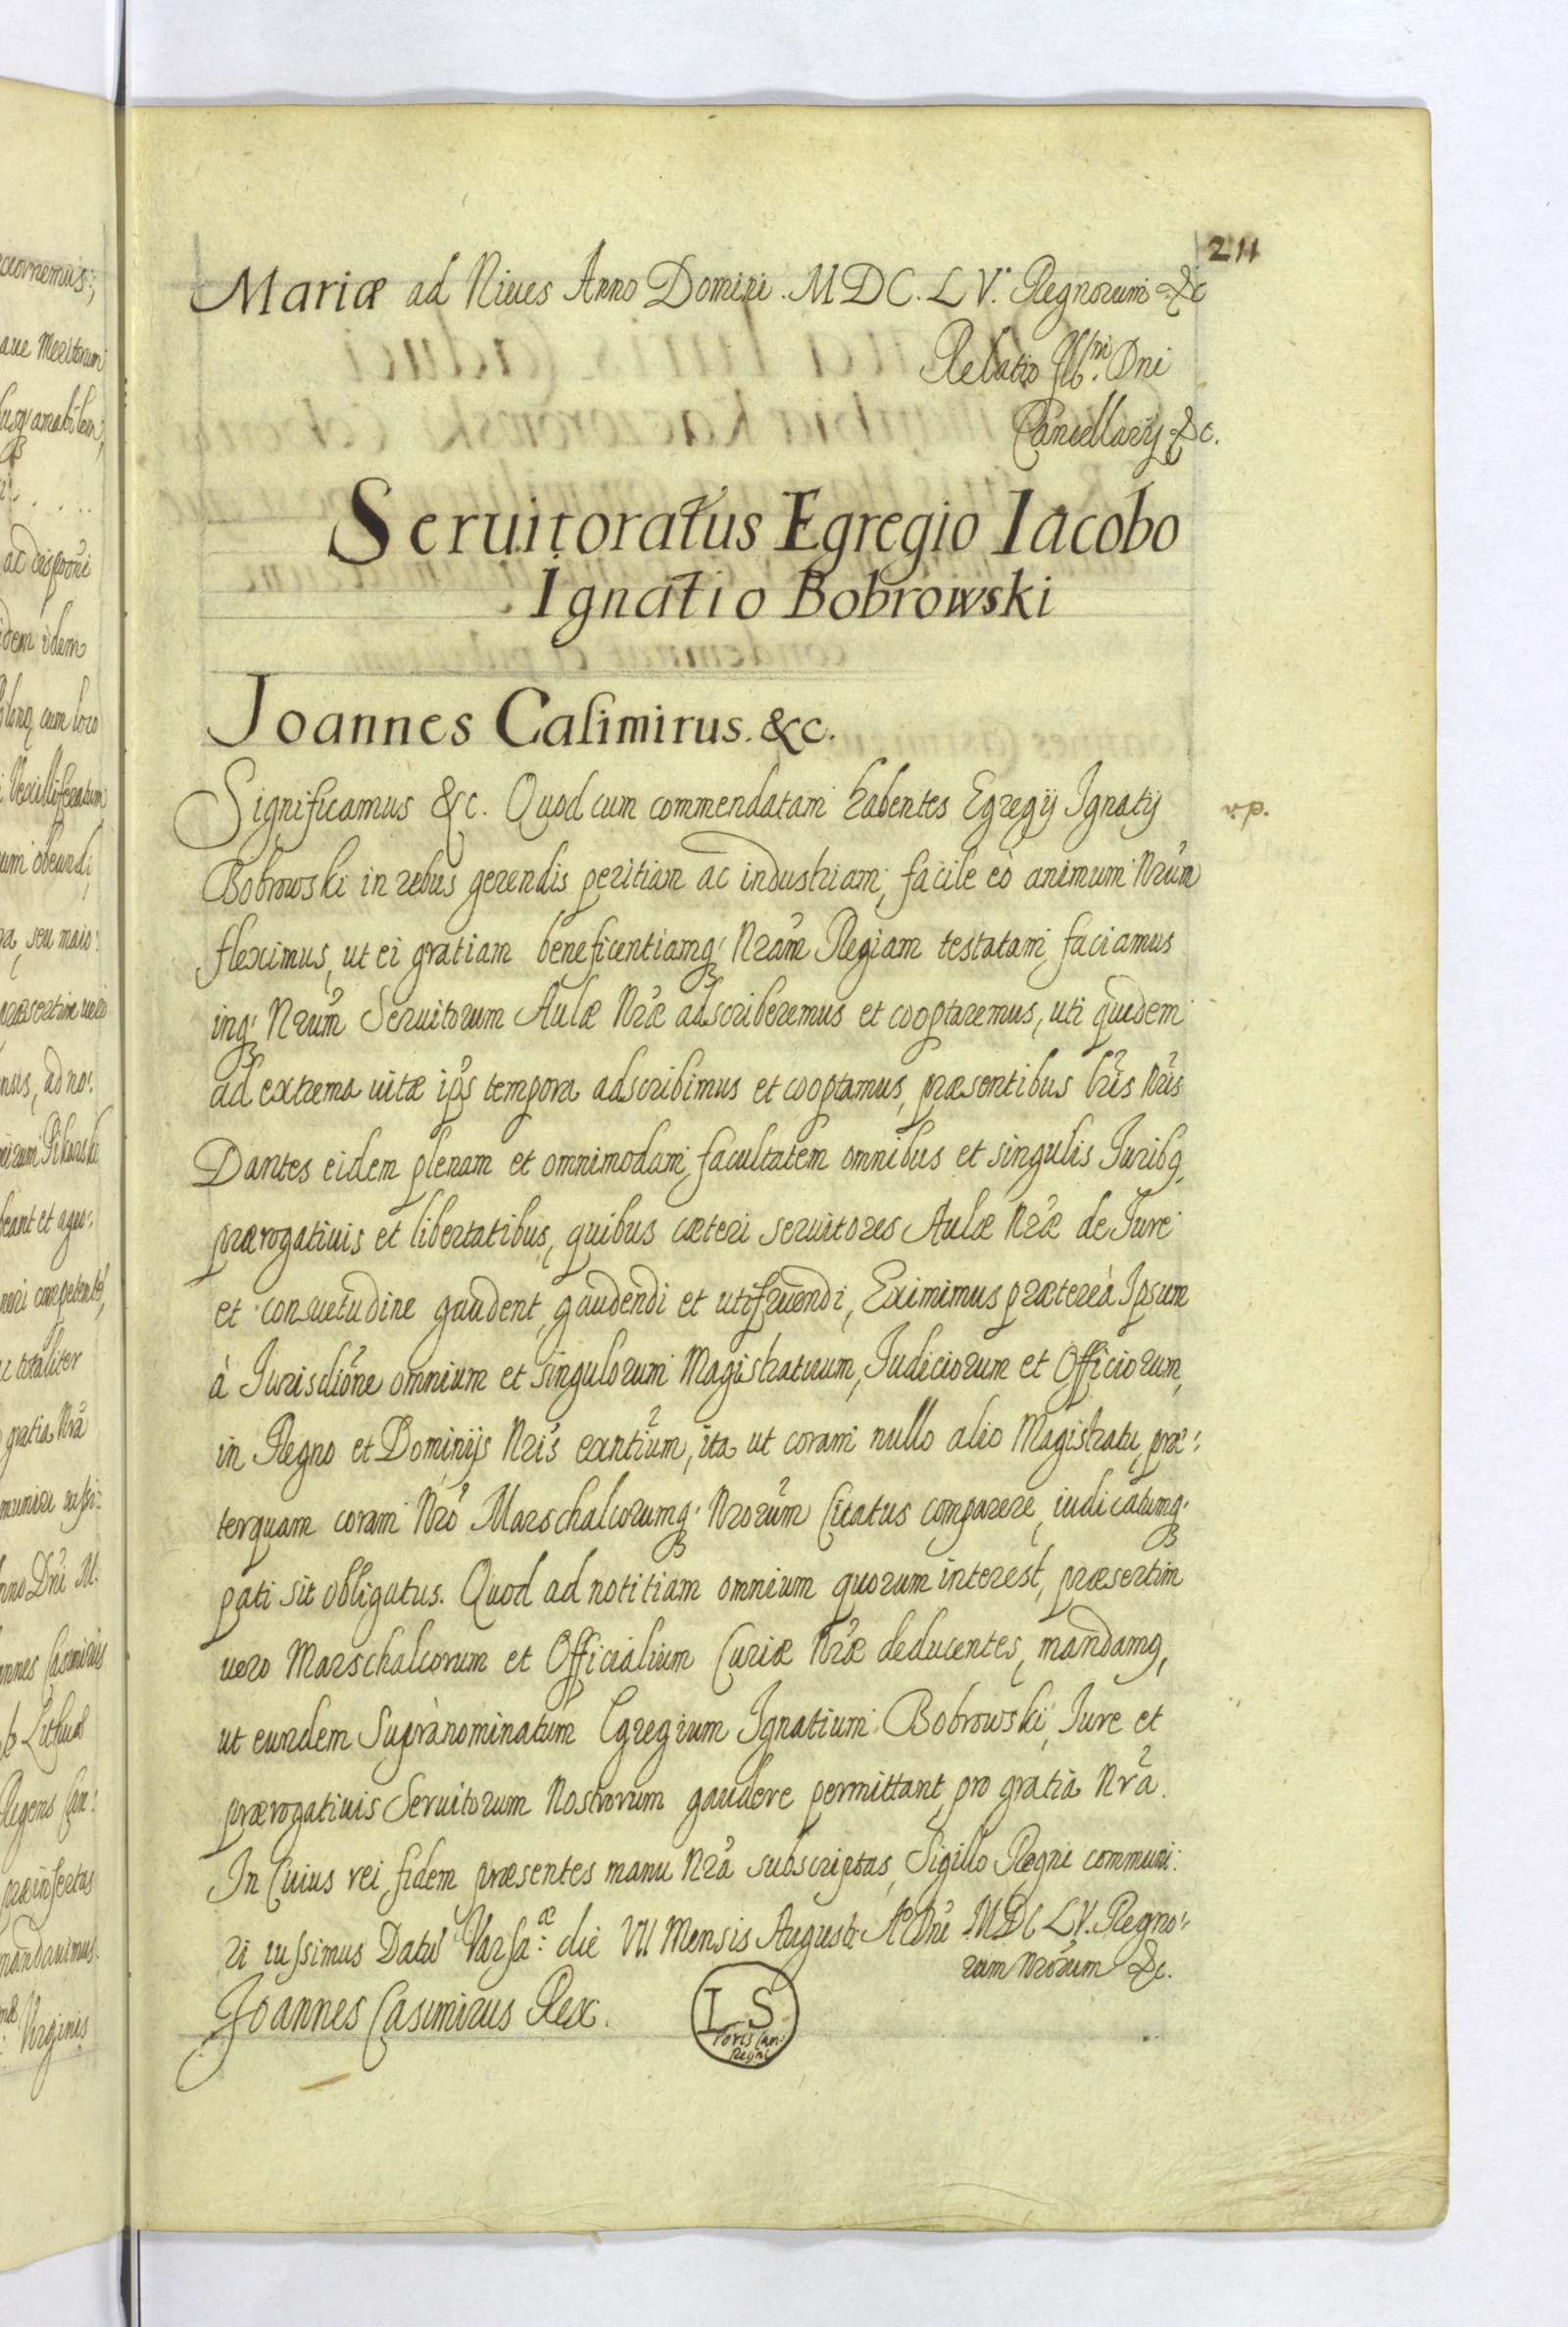 211
Mariæ ad Niues Anno Domini. MDC.LV. Regnorum &c
Relatio Ill.mi Dni
Cancellarij &c.
Seruitoratus Egregio Iacobo
Ignatio Bobrowski
Joannes Casimirus. &c.
Significamus &c. Quod cum commendatam habentes Egregij Ignatij
Bobrowski in rebus gerendis peritiam ac industriam, facile eò animum Nrum
fleximus, ut ei gratiam beneficentiamq; Nram Regiam testatam faciamus
inq; Nrum Seruitorum Aulæ Nræ adscriberemus et cooptaremus, uti quidem
ad extrema uitæ ips tempora adscribimus et cooptamus, præsentibus lris nris
Dantes eidem plenam et omnimodam facultatem omnibus et singulis Juribq,
prærogatiuis et libertatibus, quibus cæteri seruitores Aulæ Nræ de Jure
et consuetudine gaudent, gaudendi et utifruendi, Eximimus prætereà Ipsum
à Jurisdione omnium et singulorum Magistratuum, Judiciorum et Officiorum,
in Regno et Dominijs Nris exntium, ita ut coram nullo alio Magistratu, præ:
terquam coram Nro Marschalcorumq; Nrorum Citatus comparere, iudicatumq;
pati sit obligatus. Quod ad notitiam omnium quorum interest, præsertim
uero Marschalcorum et Officialium Curiæ Nræ deducentes, mandamq,
ut eundem Supranominatum Egregium Ignatium Bobrowski, Jure et
prærogatiuis Seruitorum Nostrorum gaudere permittant, pro gratia Nra.
In Cuius rei fidem præsentes manu Nra subscriptas, Sigillo Regni communi:
ri iussimus Datu Varsa:æ die VII Mensis Augusti Ao Dni MDCLV. Regno:
rum Nrorum &c.
Joannes Casimirus Rex.
L S
Regni